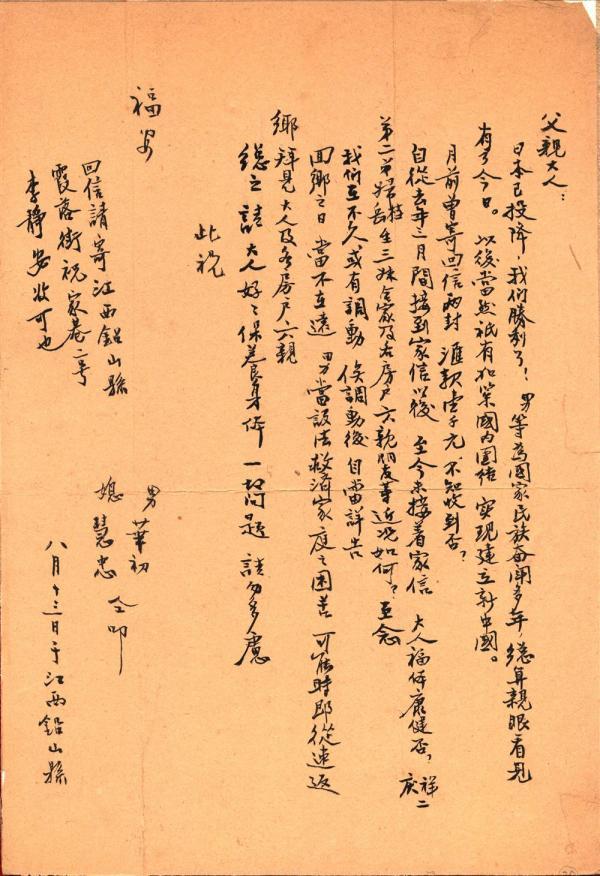 父親大人：
日本已投降，我们勝利了！男等為國家民族奋闘多年，總算親眼看見
有了今日。以後當然祇有加策國内團结 实现建立新中國。
月前曾寄回信两封 滙款壹千元 不知收到否？
自從去年三月間接到家信以後 至今未接着家信 大人福体康健否，祥二 庆
第二弟婦 桂岳 生三妹全家及各房戶六親朋友等近况如何？至念
我们在不久或有調動 俟調動後 自當詳告
回鄉之日 當不在遠 男當設法救済家庭之困苦 可能時即從速返
鄉拜見大人及各房戶六親
總之 請大人好々保養身体 一切问題 請勿多慮
此祝
福安
男 華初
媳 慧忠 仝叩
八月十三日于江西鉛山縣
回信請寄江西鉛山縣
霞落街祝家巷二号
李靜安收可也